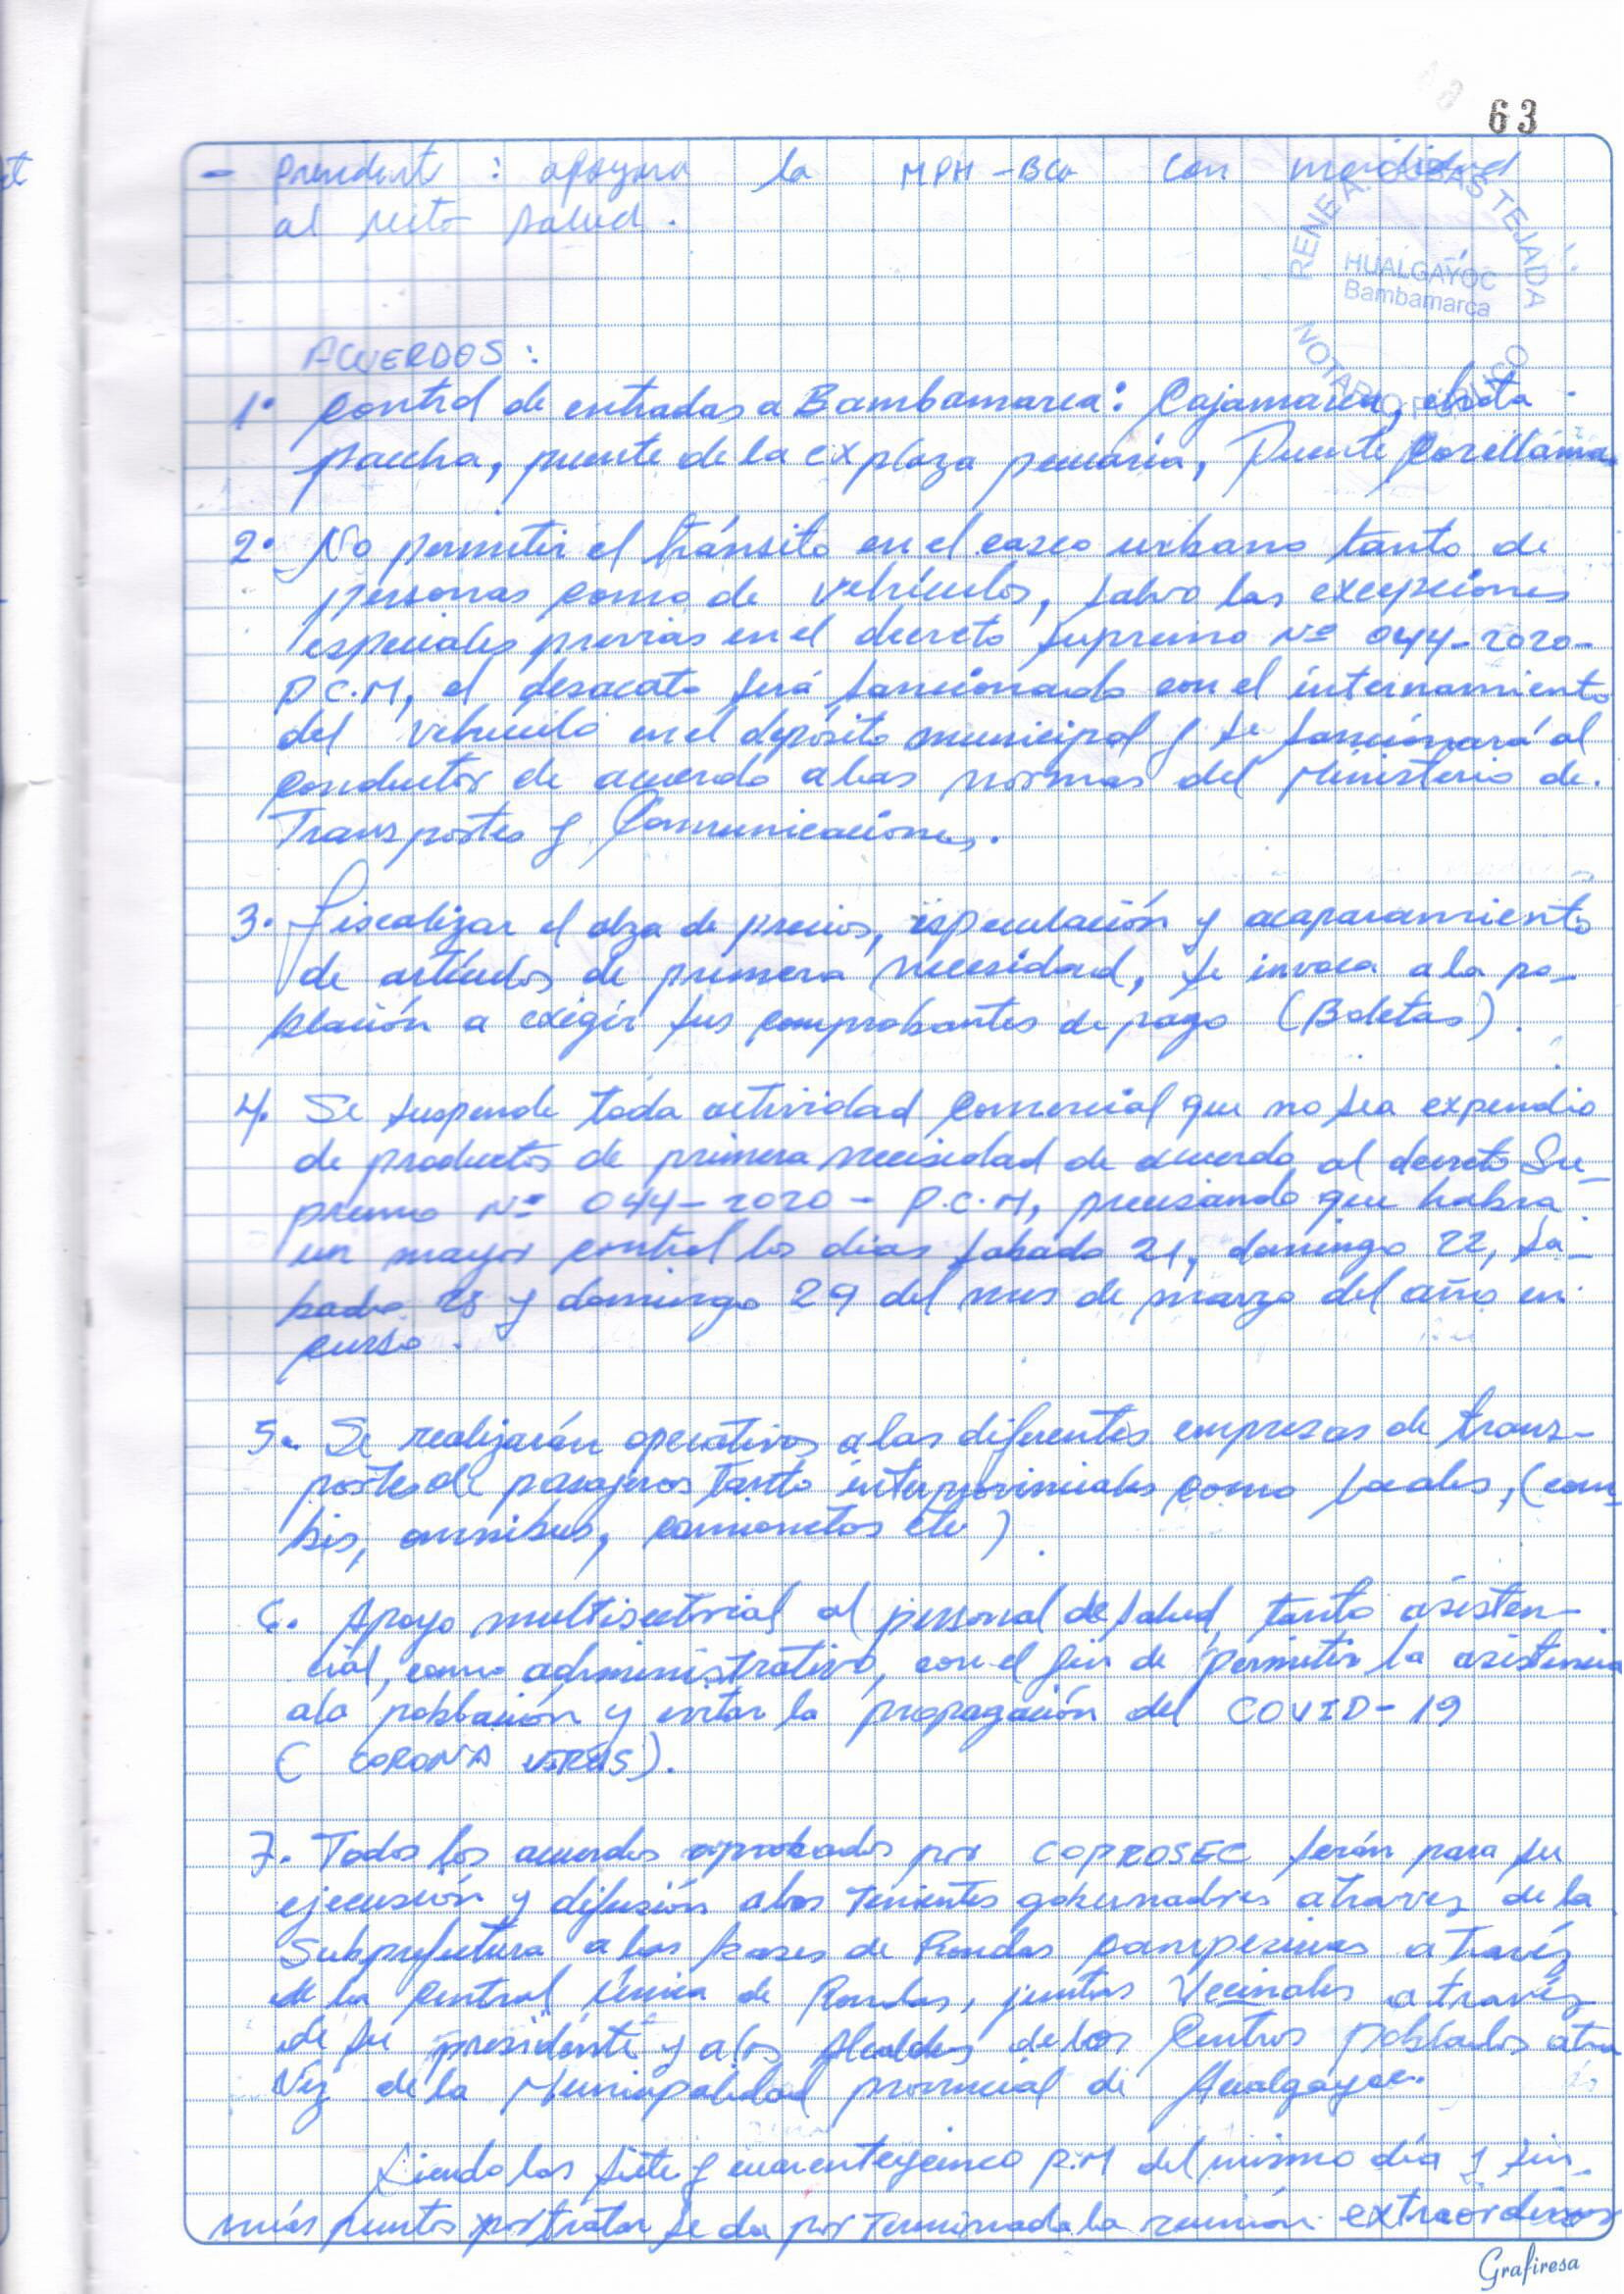 63
- President : apoyara la MPH-BCA con movilidad
al sector salud.
RENE A. CUBAS TEJADA
HUALGAYOC
Bambamarca
NOTARIO PUBLICO
ACUERDOS :
1. Control de entradas a Bambamarca: Cajamarca, chota
paccha, puente de la ex plaza pecuaria, Puente Corellama
2. No permitir el tránsito en el casco urbano tanto de
personas como de vehículos, salvo las excepciones
especiales previas en el decreto supremo Nº 044-2020-
P.C.M, el desacato será sancionado con el internamiento
del vehículo en el depósito municipal y se sancionará al
conductor de acuerdo a las normas del Ministerio de.
Transportes y Comunicaciones.
3. Fiscalizar el alza de precios, especulación y acaparamiento
de artículos de primera necesidad, se invoca a la po-
blación a exigir sus comprobantes de pago (Boletas).
4. Se suspende toda actividad comercial que no sea expendio
de productos de primera necesidad de acuerdo al decreto Su-
premo Nº 044-2020- P.C.M, precisando que habra
un mayor control los dias sabado 21, domingo 22, sa-
bado 28 y domingo 29 del mes de marzo del año en
curso.
5. Se realizarán operativos a las diferentes empresas de trans-
portes de pasajeros tanto interprovinciales como locales, (com-
bis, omnibus, camionetas etc)
6. Apoyo multisectorial al personal de salud, tanto asisten-
cial, como administrativo, con el fin de permitir la asistencia
a la población y evitar la propagación del COVID-19
(CORONA VIRUS).
7. Todos los acuerdos aprobados por COPROSEC serán para su
ejecusión y difusión a los tenientes gobernadores atraves de la
Subprefectura a las bases de Rondas campesinas a través
de la Central Unica de Rondas, juntas Vecinales a través
de su presidente y a los Alcaldes de los Centros Poblados atra
vez de la Municipalidad provincial de Hualgayoc.
Siendo las siete y cuarenteycinco P.M del mismo día y sin
más puntos por tratar se da por terminada la reunión extraordinar
Grafiresa